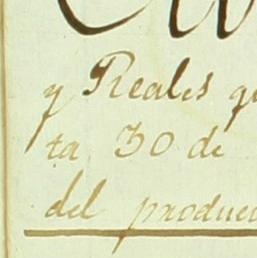 y Reales q
ta 30 de
del produc